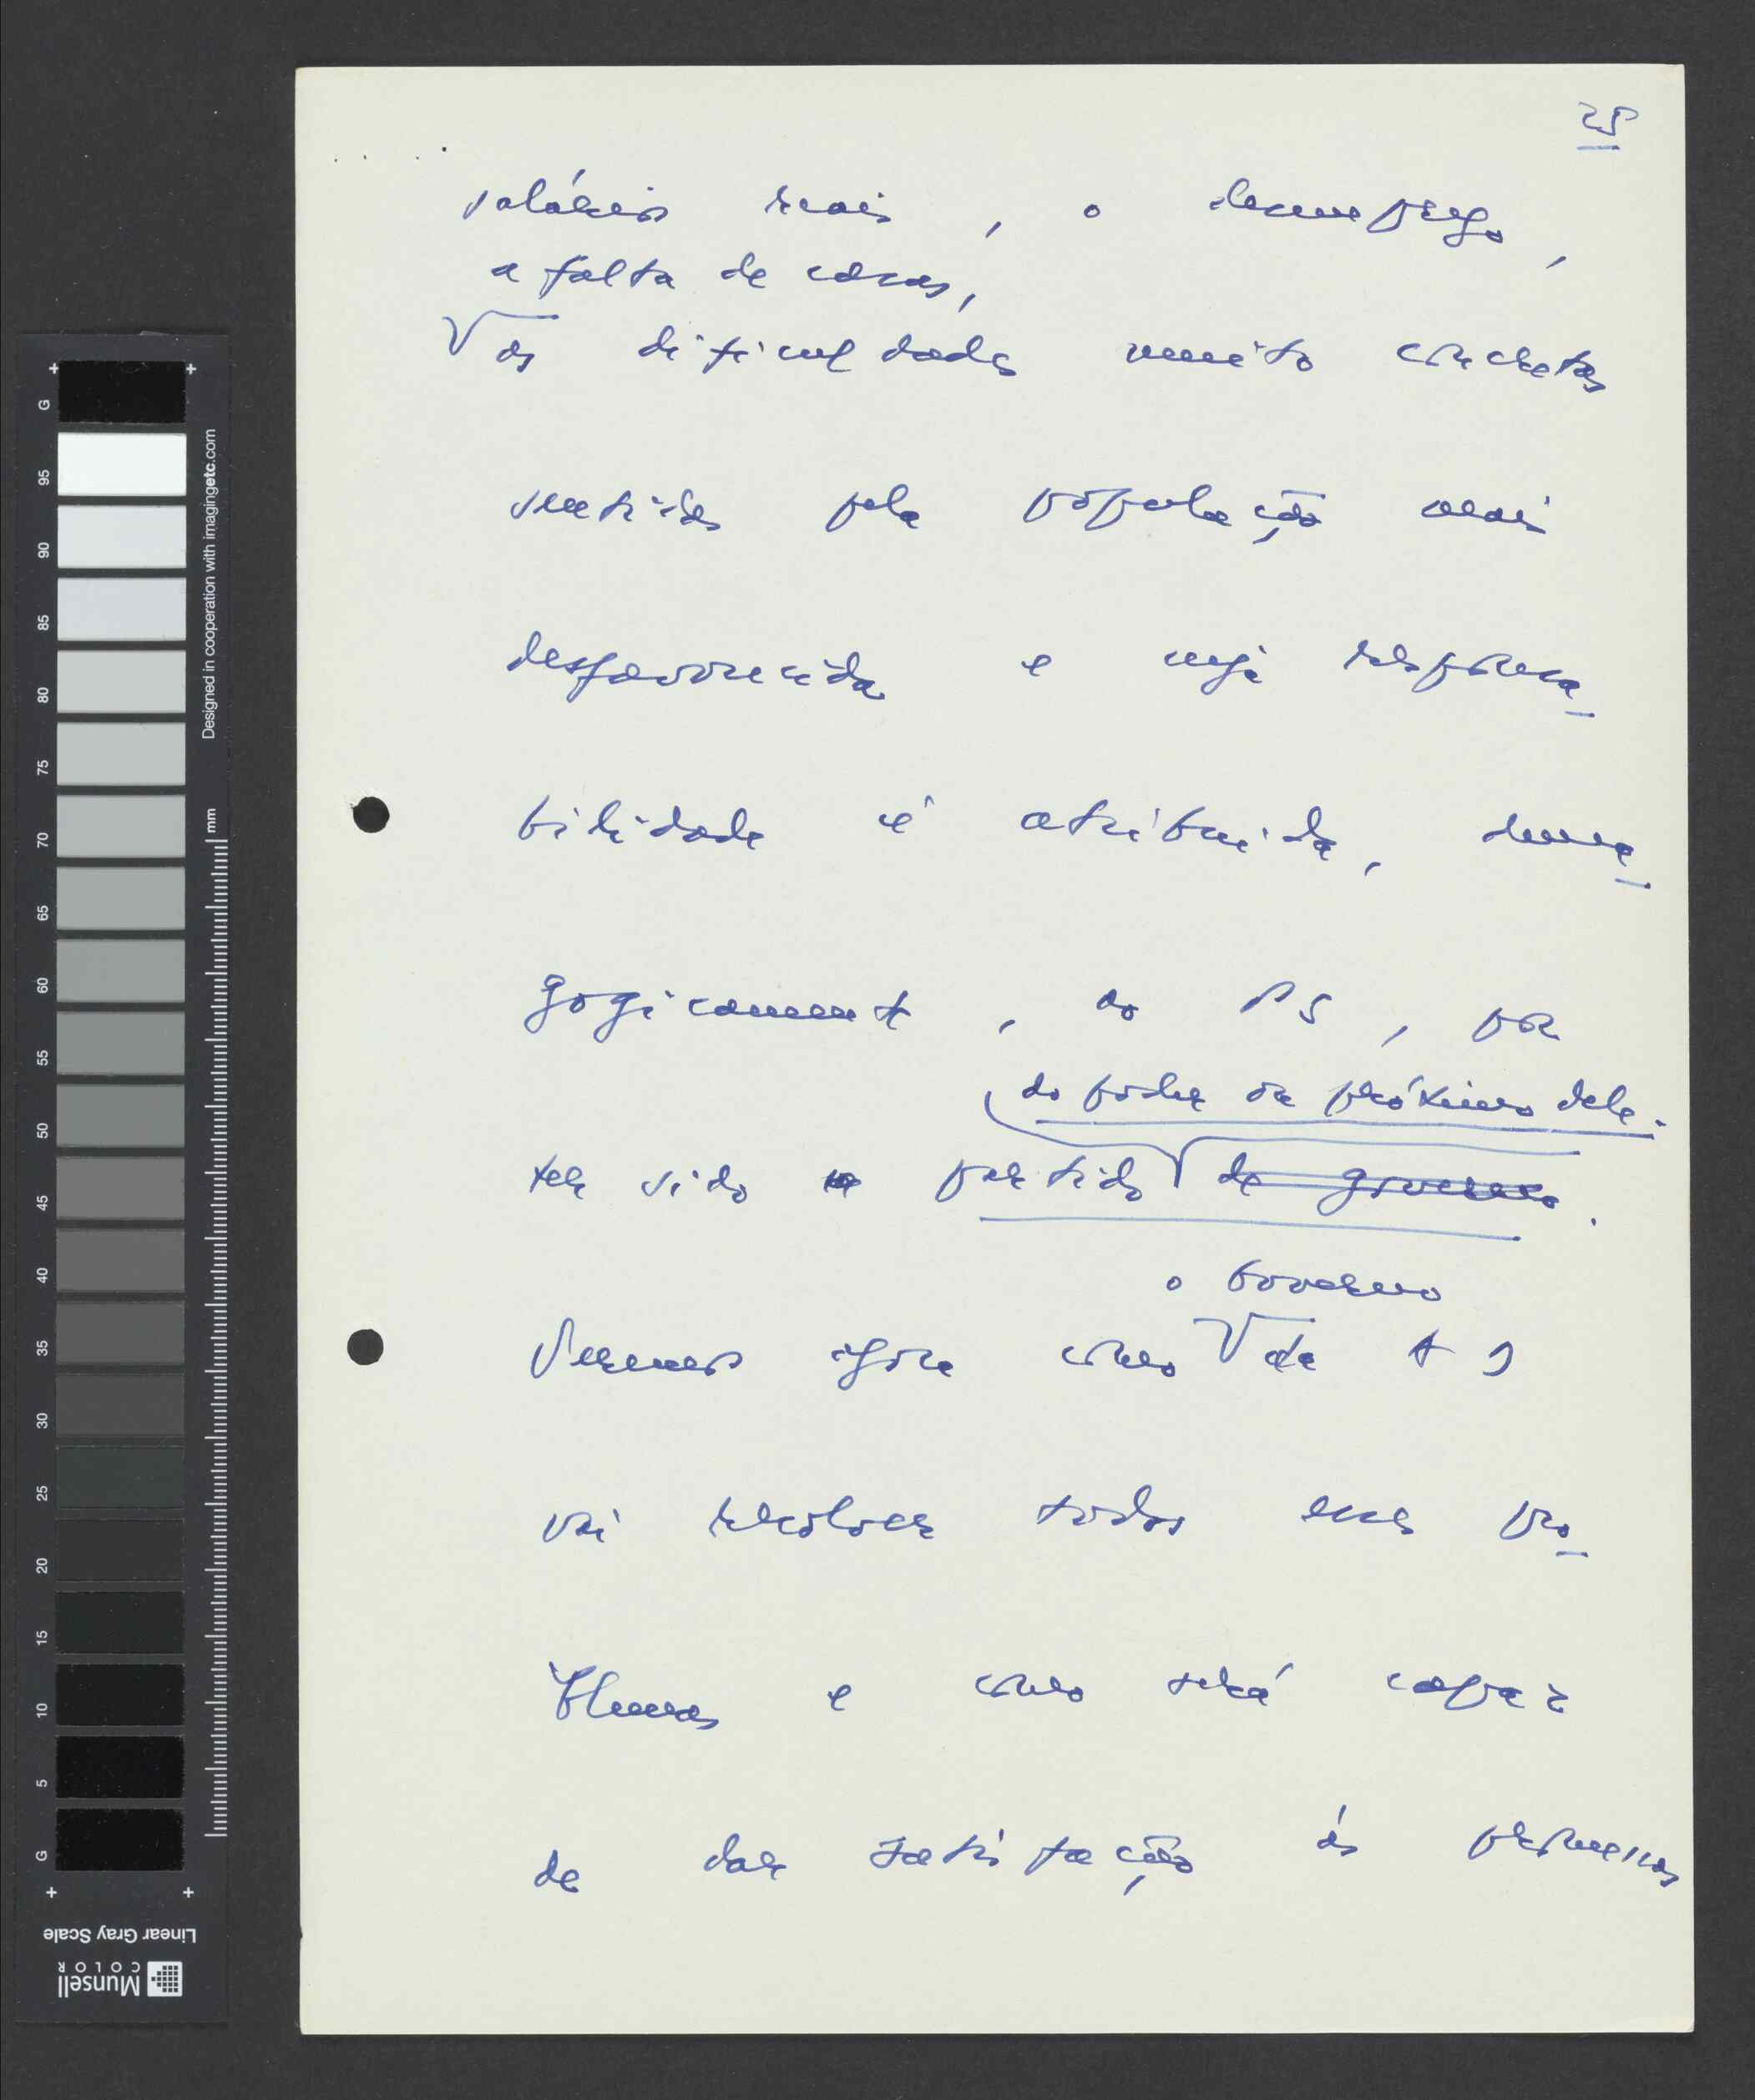 25
salários reais, o desemprego,
a falta de casas,
as dificuldades muito concretas
sentidas pela população mais
desfavorecida e cuja responsa_
bilidade é atribuida, dema_
gogicamente, ao PS, por
do poder ou próximo dele.
ter sido partido de governo.
o Governo
Veremos agora como da AD
vai resolver todos esses pro_
blemas e como será capaz
de dar satisfação às promessas
G
95
90
85
80
75
70
65
60
55
50
45
40
35
30
25
20
15
10
5
G
Designed in cooperation with imagingetc.com
mm
Linear Gray Scale
Munsell
COLOR